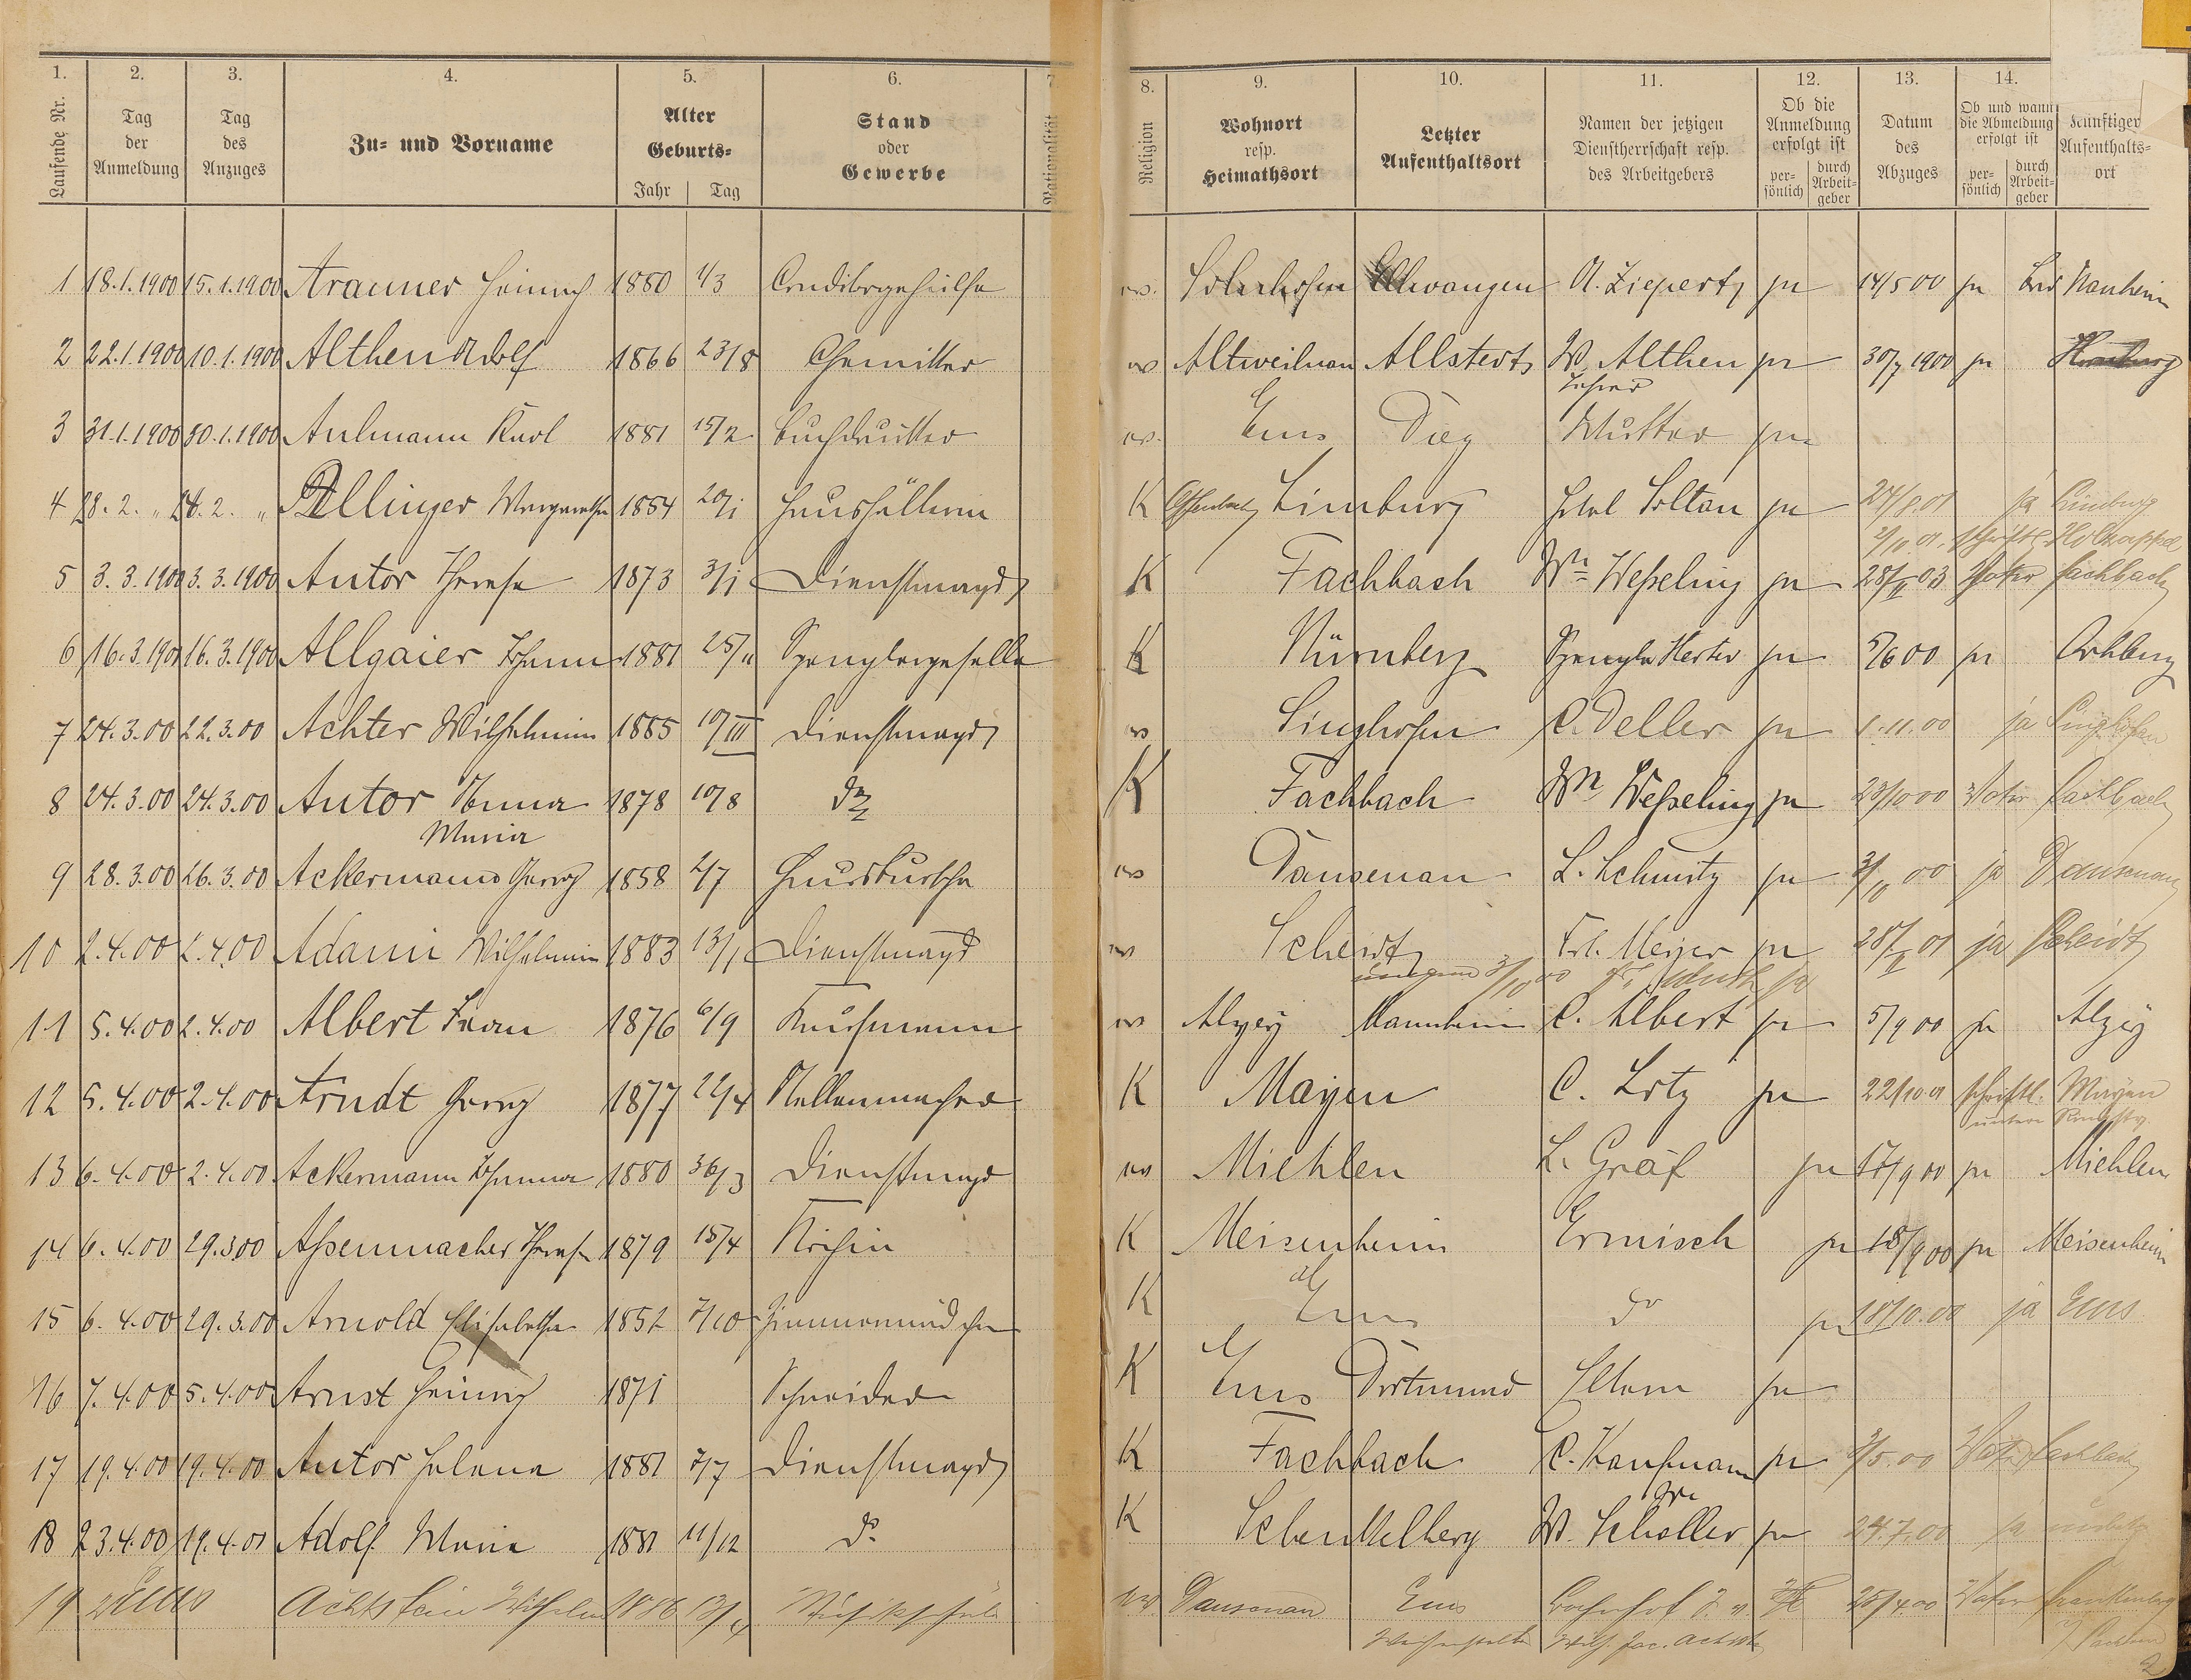 1. 2. 3. 4. 5. 6. 7 8. 9. 10. 11. 12. 13. 14.
Laufende Nr. | Tag der Anmeldung | Tag des Anzuges | Zu- und Vorname | Alter Geburts- Jahr | Tag | Stand oder Gewerbe | Nationalität | Religion | Wohnort resp. Heimathsort | Letzter Aufenthaltsort | Namen der jetzigen Dienstherrschaft resp. des Arbeitgebers | Ob die Anmeldung erfolgt ist persönlich | durch Arbeitgeber | Datum des Abzuges | Ob und wann die Abmeldung erfolgt ist persönlich | durch Arbeitgeber | Künftiger Aufenthaltsort
1 18.1.1900 15.1.1900 Arauner Heinrich 1880 1/3 Conditorgehülfe ev. Ellwangen A. Ziepert ja 14/5 00 ja Bad Nauheim
2 22.1.1900 10.1.1900 Althen Adolf 1866 23/8 Chemiker ev Altweilnau Allstedt W. Althen ja 30/7 1900 ja Homburg
3 31.1.1900 30.1.1900 Aulmann Karl 1881 15/2 Buchdrucker ev. Ems Diez Mutter ja
4 28.2. " 24.2. " Allinger Margarethe 1854 20/1 Haushälterin K Offenbach Limburg Hotel Soltau ja 24/8.01 ja Limburg
2/10.01. schriftl. Holzappel
5 3.3.1900 3.3.1900 Autor Therese 1873 3/1 Dienstmagd K Fachbach Wn Weßeling ja 28/II 03 Vater Fachbach
6 16.3.1900 16.3.1900 Allgaier Johann 1881 25/11 Spenglergeselle K Nürnberg Spengler Herter ja 5/6 00 ja
7 24.3.00 22.3.00 Achter Wilhelmine 1885 10/III Dienstmagd ev Singhofen C. Deller ja 1.11.00 ja Singhofen
8 24.3.00 24.3.00 Autor Anna 1878 10/8 do K Fachbach Wn Weßeling ja 23/10 00 Vater Fachbach
Maria
9 28.3.00 26.3.00 Ackermann Georg 1858 2/7 Hausbursche ev Dausenau L. Schmitz ja 3/10 00 ja Dausenau
10 2.4.00 2.4.00 Adami Wilhelmine 1883 13/1 Dienstmagd ev Scheidt Frl. Meyer ja 28/II 01 ja Scheidt
3/10 00 ja
11 5.4.00 2.4.00 Albert 1876 6/9 Kaufmann ev Alzey Mannheim C. Albert ja 5/9 00 ja Alzey
12 5.4.00 2.4.00 Arndt Georg 1877 22/4 Kellermacher K Mayen C. Lotz ja 22/10 01 schriftl. Mayen
13 6.4.00 2.4.00 Ackermann Johanna 1880 30/3 Dienstmagd ev Miehlen L. Gräf ja 17/9 00 ja Miehlen
14 6.4.00 29.3.00 Aßenmacher Therese 1879 15/4 Köchin K Meisenheim Ermisch ja 18/9 00 ja Meisenheim
15 6.4.00 29.3.00 Arnold Elisabetha 1852 7/10 Zimmermädchen K Ems do ja 18/10.00 ja Ems
16 7.4.00 5.4.00 Arnst Heinrich 1871 Schneider K Ems Dortmund Eltern ja
17 19.4.00 19.4.00 Autor Helena 1881 7/7 Dienstmagd K Fachbach C. Kaufmann ja 3/5.00 Vater Fachbach
18 23.4.00 19.4.01 Adolf Maria 1881 11/12 do K Schenkelberg W. Scholler ja 24.7.00 ja
19 Achtstein Wilhelm 1886 13/4 ev Dausenau Ems Bahnhof 25/4.00 Vater Frankenberg
Wilh. Jac. Achtst